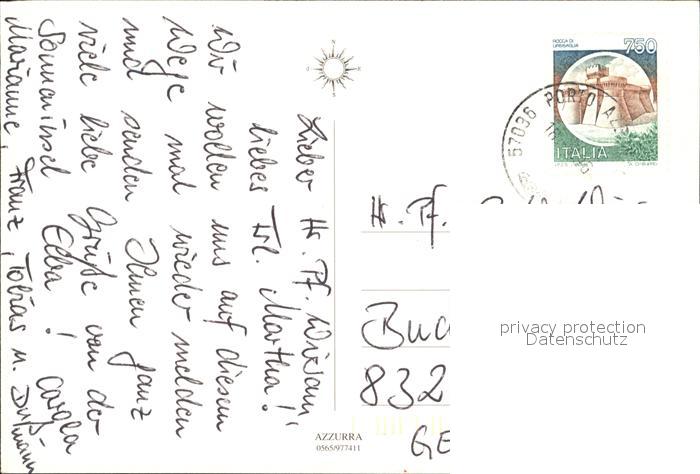 Lieber Hr. Pf. Wirsam,
liebes Frl. Martha!
Wir wollen uns auf diesem
Wege mal wieder melden
und senden Ihnen ganz
viele liebe Grüße von der
Sonneninsel Elba! Carola
Marianne, Franz, Tobias u.
ROCCA DI
URBISAGLIA
750
ITALIA
57036 PORTO AZ
Hr. Pf.
832
GE
AZZURRA
0565/977411
privacy protection
Datenschutz